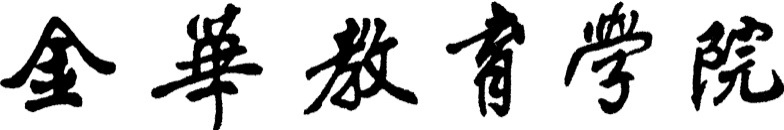 金華教育學院